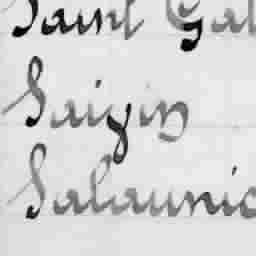 Saint Gal
Saiyin
Salaunic